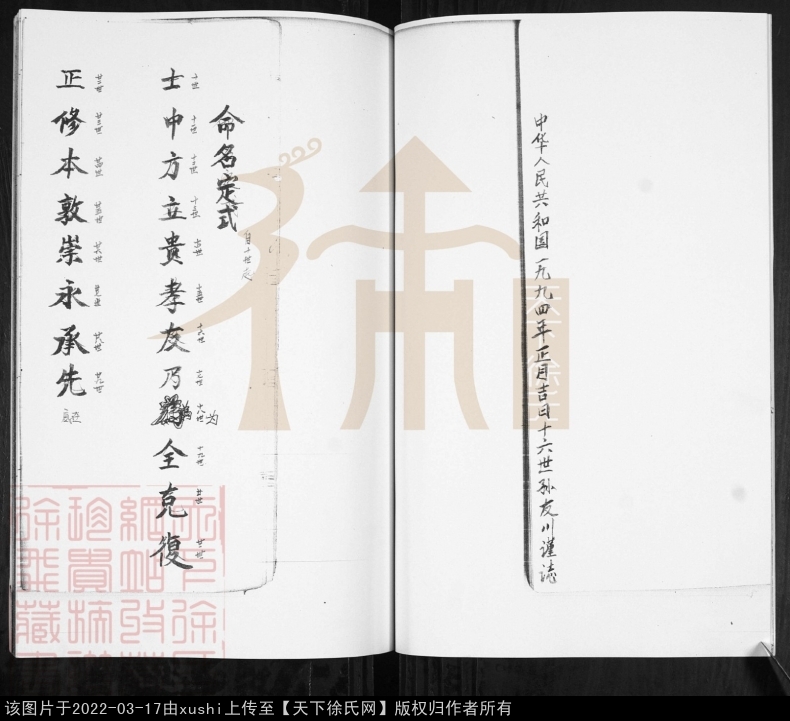 中华人民共和国一九九四年正月吉日十六世孙友川谨志
命名定式
自十世起
士 十世
申 十一世
方 十二世
立 十三世
貴 十四世
孝 十五世
友 十六世
乃 十七世
為 十八世 为
全 十九世
克 廿世
復 廿一世
正 廿二世
修 廿三世
本 廿四世
敦 廿五世
崇 廿六世
永 廿七世
承 廿八世
先 廿九世
徐
天下徐氏
该图片于2022-03-17由xushi上传至【天下徐氏网】版权归作者所有